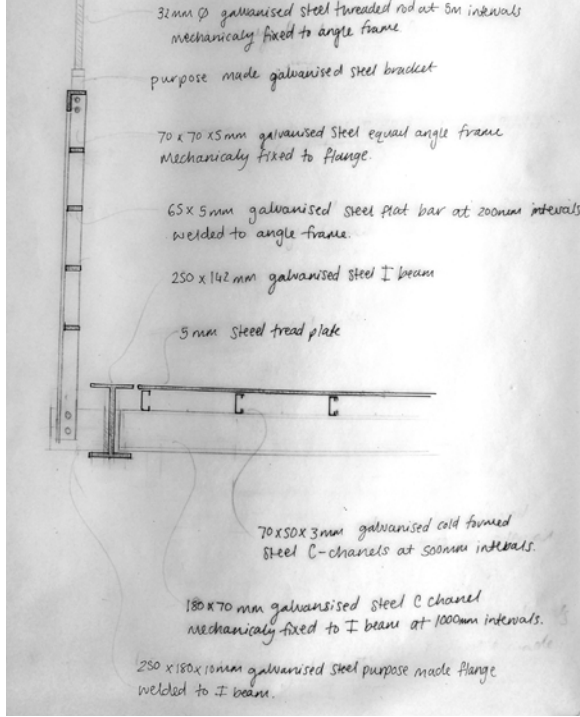 32mm Ø galvanised steel threaded rod at 5m intervals
mechanicaly fixed to angle frame
purpose made galvanised steel bracket
70 x 70 x 5mm galvanised steel equail angle frame
mechanicaly fixed to flange.
65 x 5mm galvanised steel flat bar at 200mm intevals
welded to angle frame.
250 x 142 mm galvanised steel I beam
5mm steeel tread plate
70 x 50 x 3mm galvanised cold formed
steel C-chanels at 500mm intevals.
180 x 70 mm galvansised steel C chanel
mechanicaly fixed to I beam at 1000mm intervals.
250 x 180 x 10mm galvanised steel purpose made flange
welded to I beam.